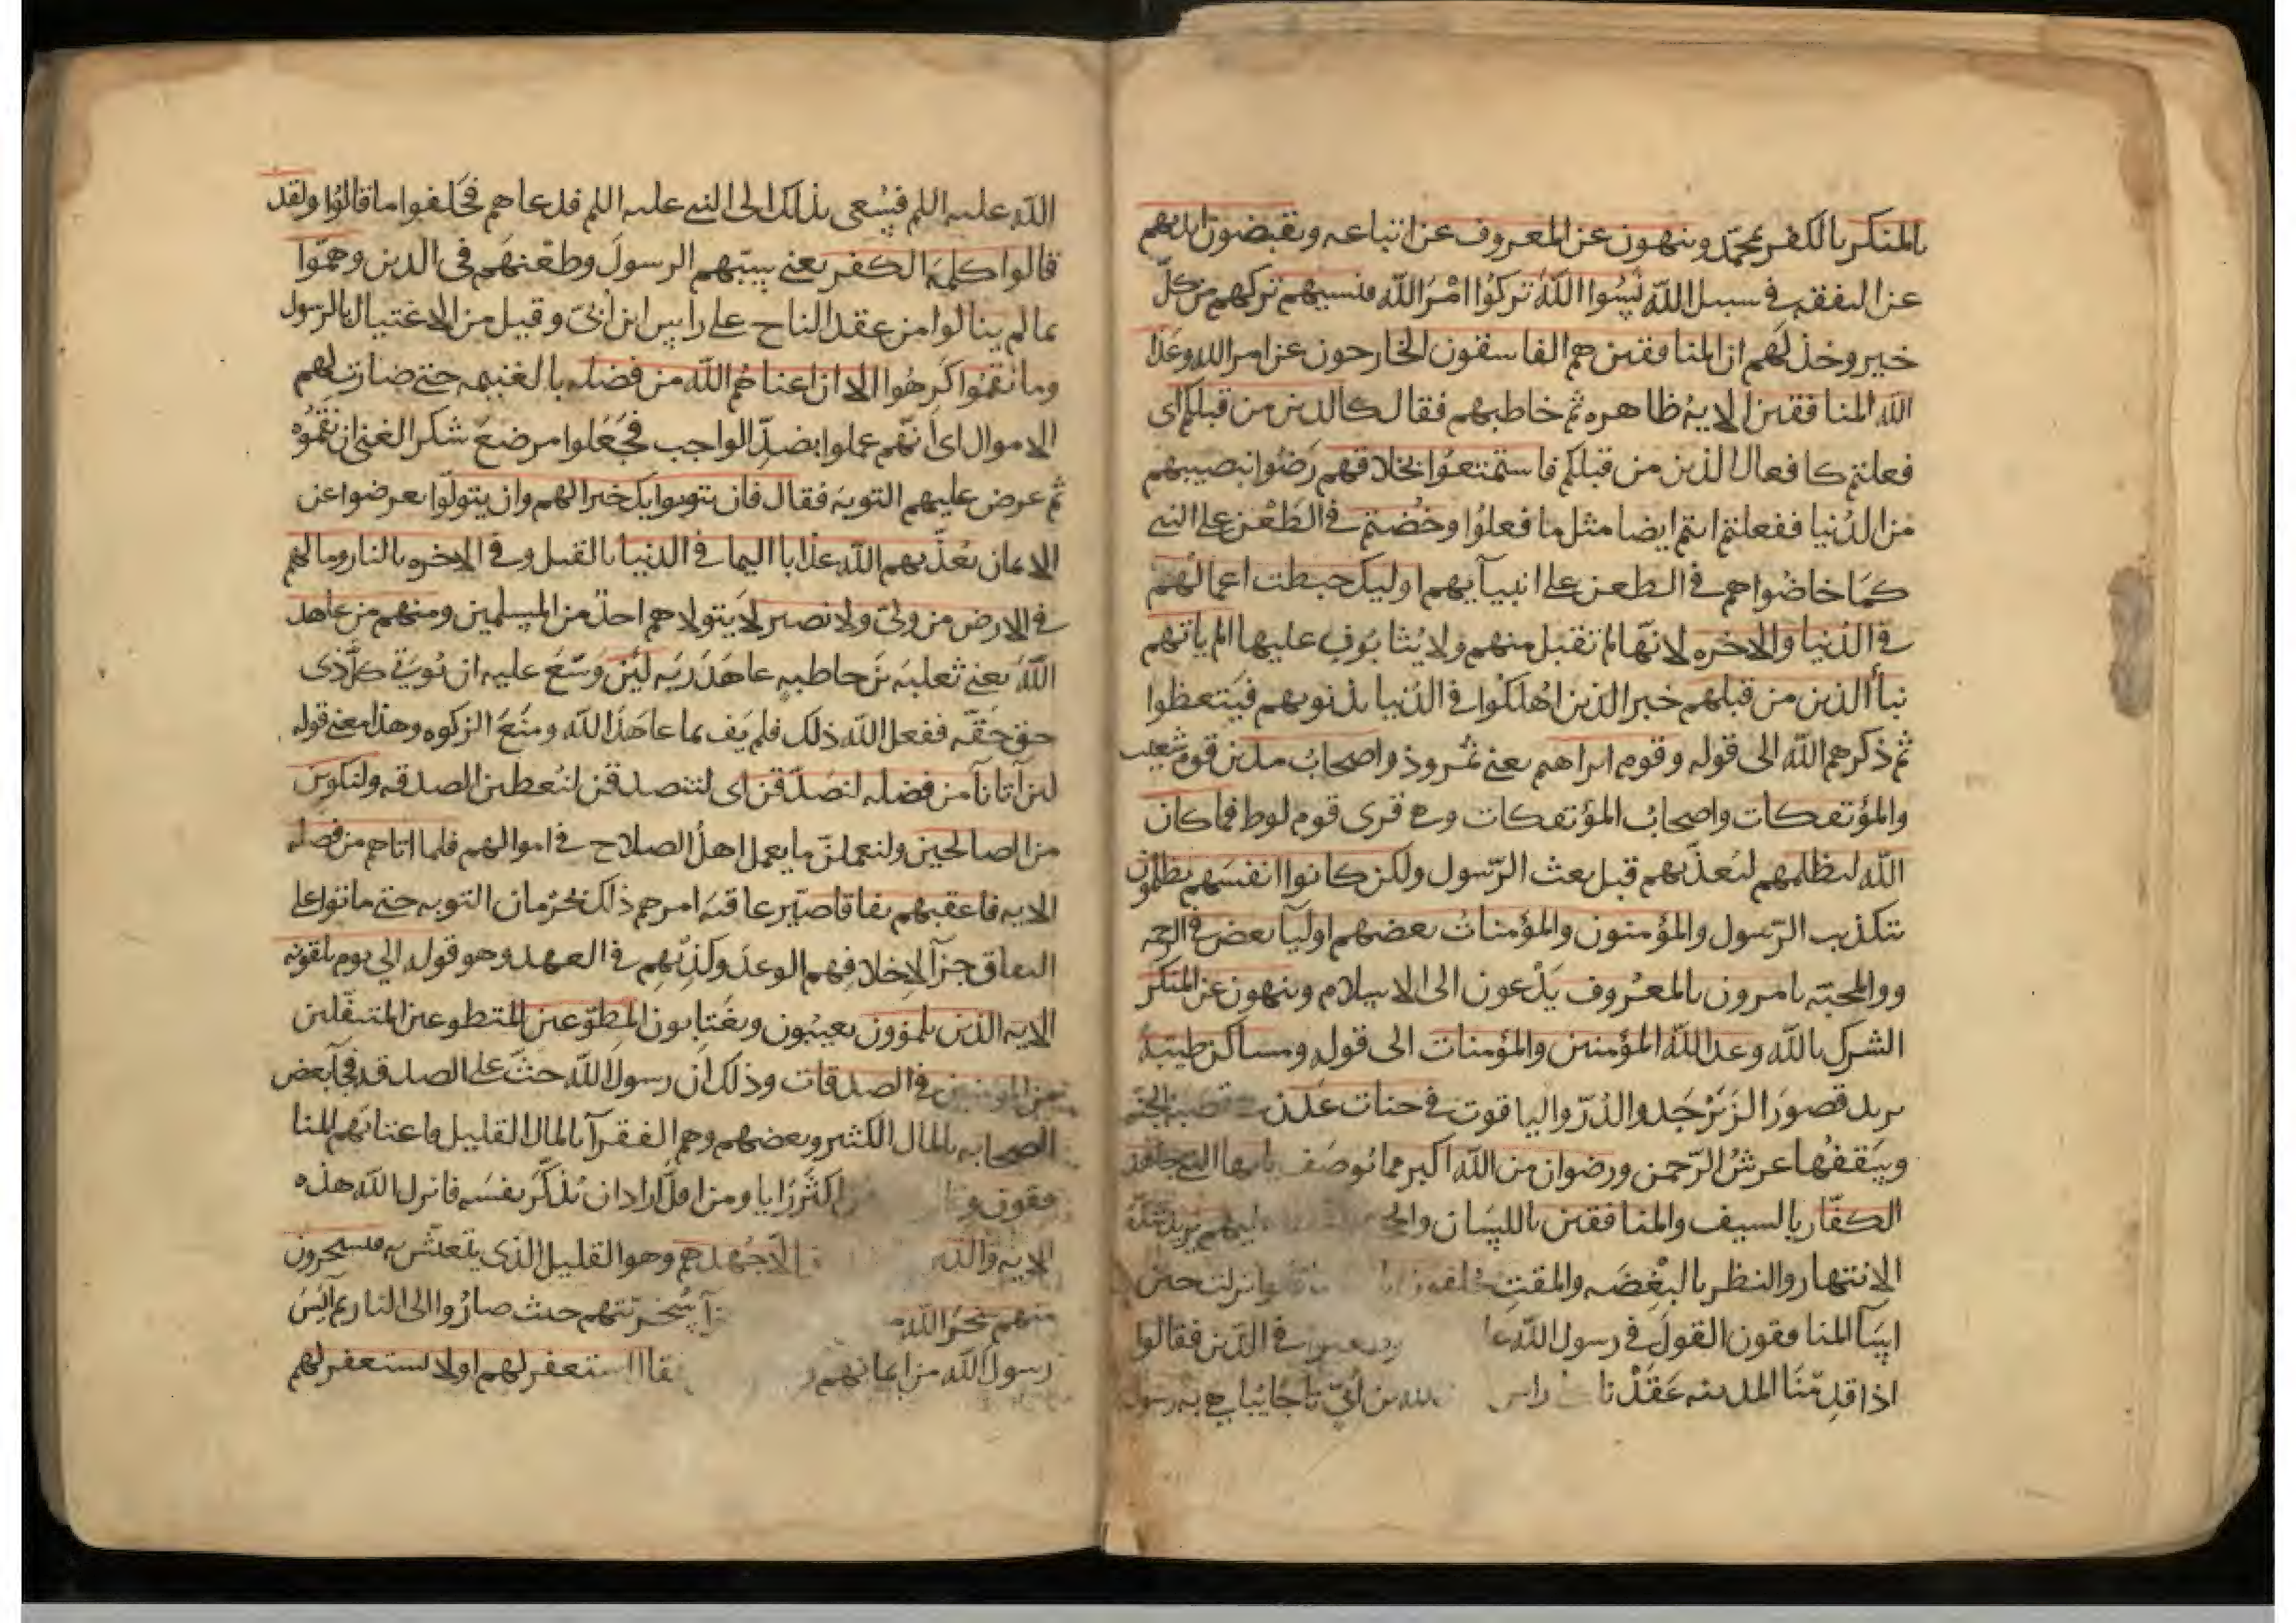 بالمنكر بالكفر بمحمد وينهون عن المعروف عن اتباعه ويقبضون ايديهم
عن النفقه في سبيل الله نسوا الله تركوا امر الله فنسيهم تركهم من كل
خير وخذلهم ان المنافقين هم الفاسقون الخارجون عن امر الله وعد
الله المنافقين الاية ظاهره ثم خاطبهم فقال كالذين من قبلكم اى
فعلتم كافعال الذين من قبلكم فاستمتعوا بخلاقهم رضوا بنصيبهم
من الدنيا ففعلتم انتم ايضا مثل ما فعلوا وخضتم في الطعن على النبي
كما خاضوا هم في الطعن على انبيآيهم اوليك حبطت اعمالهم
في الدنيا والاخره لانها لم تقبل منهم ولا يثابون عليها الم ياتهم
نبأ الذين من قبلهم خبر الذين اهلكوا في الدنيا بذنوبهم فيتعظوا
ثم ذكرهم الله الى قوله وقوم ابراهيم يعني نمروذ واصحاب مدين قوم شعيب
والمؤتفكات واصحاب المؤتفكات وهي قرى قوم لوط فما كان
الله ليظلمهم ليعذبهم قبل بعث الرسول ولكن كانوا انفسهم يظلمون
بتكذيب الرسول والمؤمنون والمؤمنات بعضهم اوليآ بعض في الرحمه
ووالمحبته يامرون بالمعروف يدعون الى الاسلام وينهون عن المنكر
الشرك بالله وعد الله المؤمنين والمؤمنات الى قوله ومساكن طيبة
يريد قصور الزبرجد والدر والياقوت في جنات عدن هي قصبة الجنه
وسقفها عرش الرحمن ورضوان من الله اكبر مما يوصف يا ايها النبي جاهد
الكفار بالسيف والمنافقين باللسان عليهم يريد شدة
الانتهار والنظر بالبغضه والمقت نزلت حين
اسآ المنافقون القول في رسول الله في الدين فقالوا
اذا قدمنا المدينه عقدنا راس الله بن أبي تاجا يباهي به رسول
الله عليه السلم فسعى بذلك الى النبي عليه السلم فدعاهم فحلفوا ما قالوا ولقد
قالوا كلمة الكفر يعني سبهم الرسول وطعنهم في الدين وهموا
بما لم ينالوا من عقد التاج على راس ابن ابي وقيل من الاغتيال بالرسول
وما نقموا كرهوا الا ان اغناهم الله من فضله بالغنيمه حتى صارت لهم
الاموال اى انهم عملوا بضد الواجب فجعلوا موضع شكر الغنى ان نقموه
ثم عرض عليهم التوبة فقال فان يتوبوا يك خيرا لهم وان يتولوا يعرضوا عن
الايمان يعذبهم الله عذابا اليما في الدنيا بالقتل وفي الاخره بالنار وما لهم
في الارض من ولي ولا نصير لا يتولاهم احد من المسلمين ومنهم من عاهد
الله يعني ثعلبة بن حاطبه عاهد ربه لين وسع عليه ان يوتي كل ذى
حق حقه ففعل الله ذلك فلم يف بما عاهد الله ومنع الزكوه وهذا معني قوله
لين آتانا من فضله لنصدقن اى لنتصدقن لنعطين الصدقه ولنكونن
من الصالحين ولنعملن ما يعمل اهل الصلاح في اموالهم فلما اتاهم من فضله
الايه فاعقبهم نفاقا صير عاقبة امرهم ذلك بحرمان التوبه حتى ماتوا على
النفاق جزآ لاخلافهم الوعد وكذبهم في العهد وهو قوله الى يوم يلقونه
الايه الذين يلمزون يعيبون ويغتابون المطوعين المتطوعين المتنفلين
من المومنين في الصدقات وذلك ان رسول الله حث على الصدقه فجآ بعض
الصحابه بالمال الكثير وبعضهم وهم الفقرآ بالمال القليل فاغتابهم المنا
فقون اكثر رايا ومن اقل اراد ان يذكر بنفسه فانزل الله هذه
الايه والذين الا جهدهم وهو القليل الذى يتعيش به فيسخرون
منهم سخر الله سخريتهم حيث صاروا الى النار ثم آيس
رسول الله من ايمانهم استغفر لهم او لا تستغفر لهم